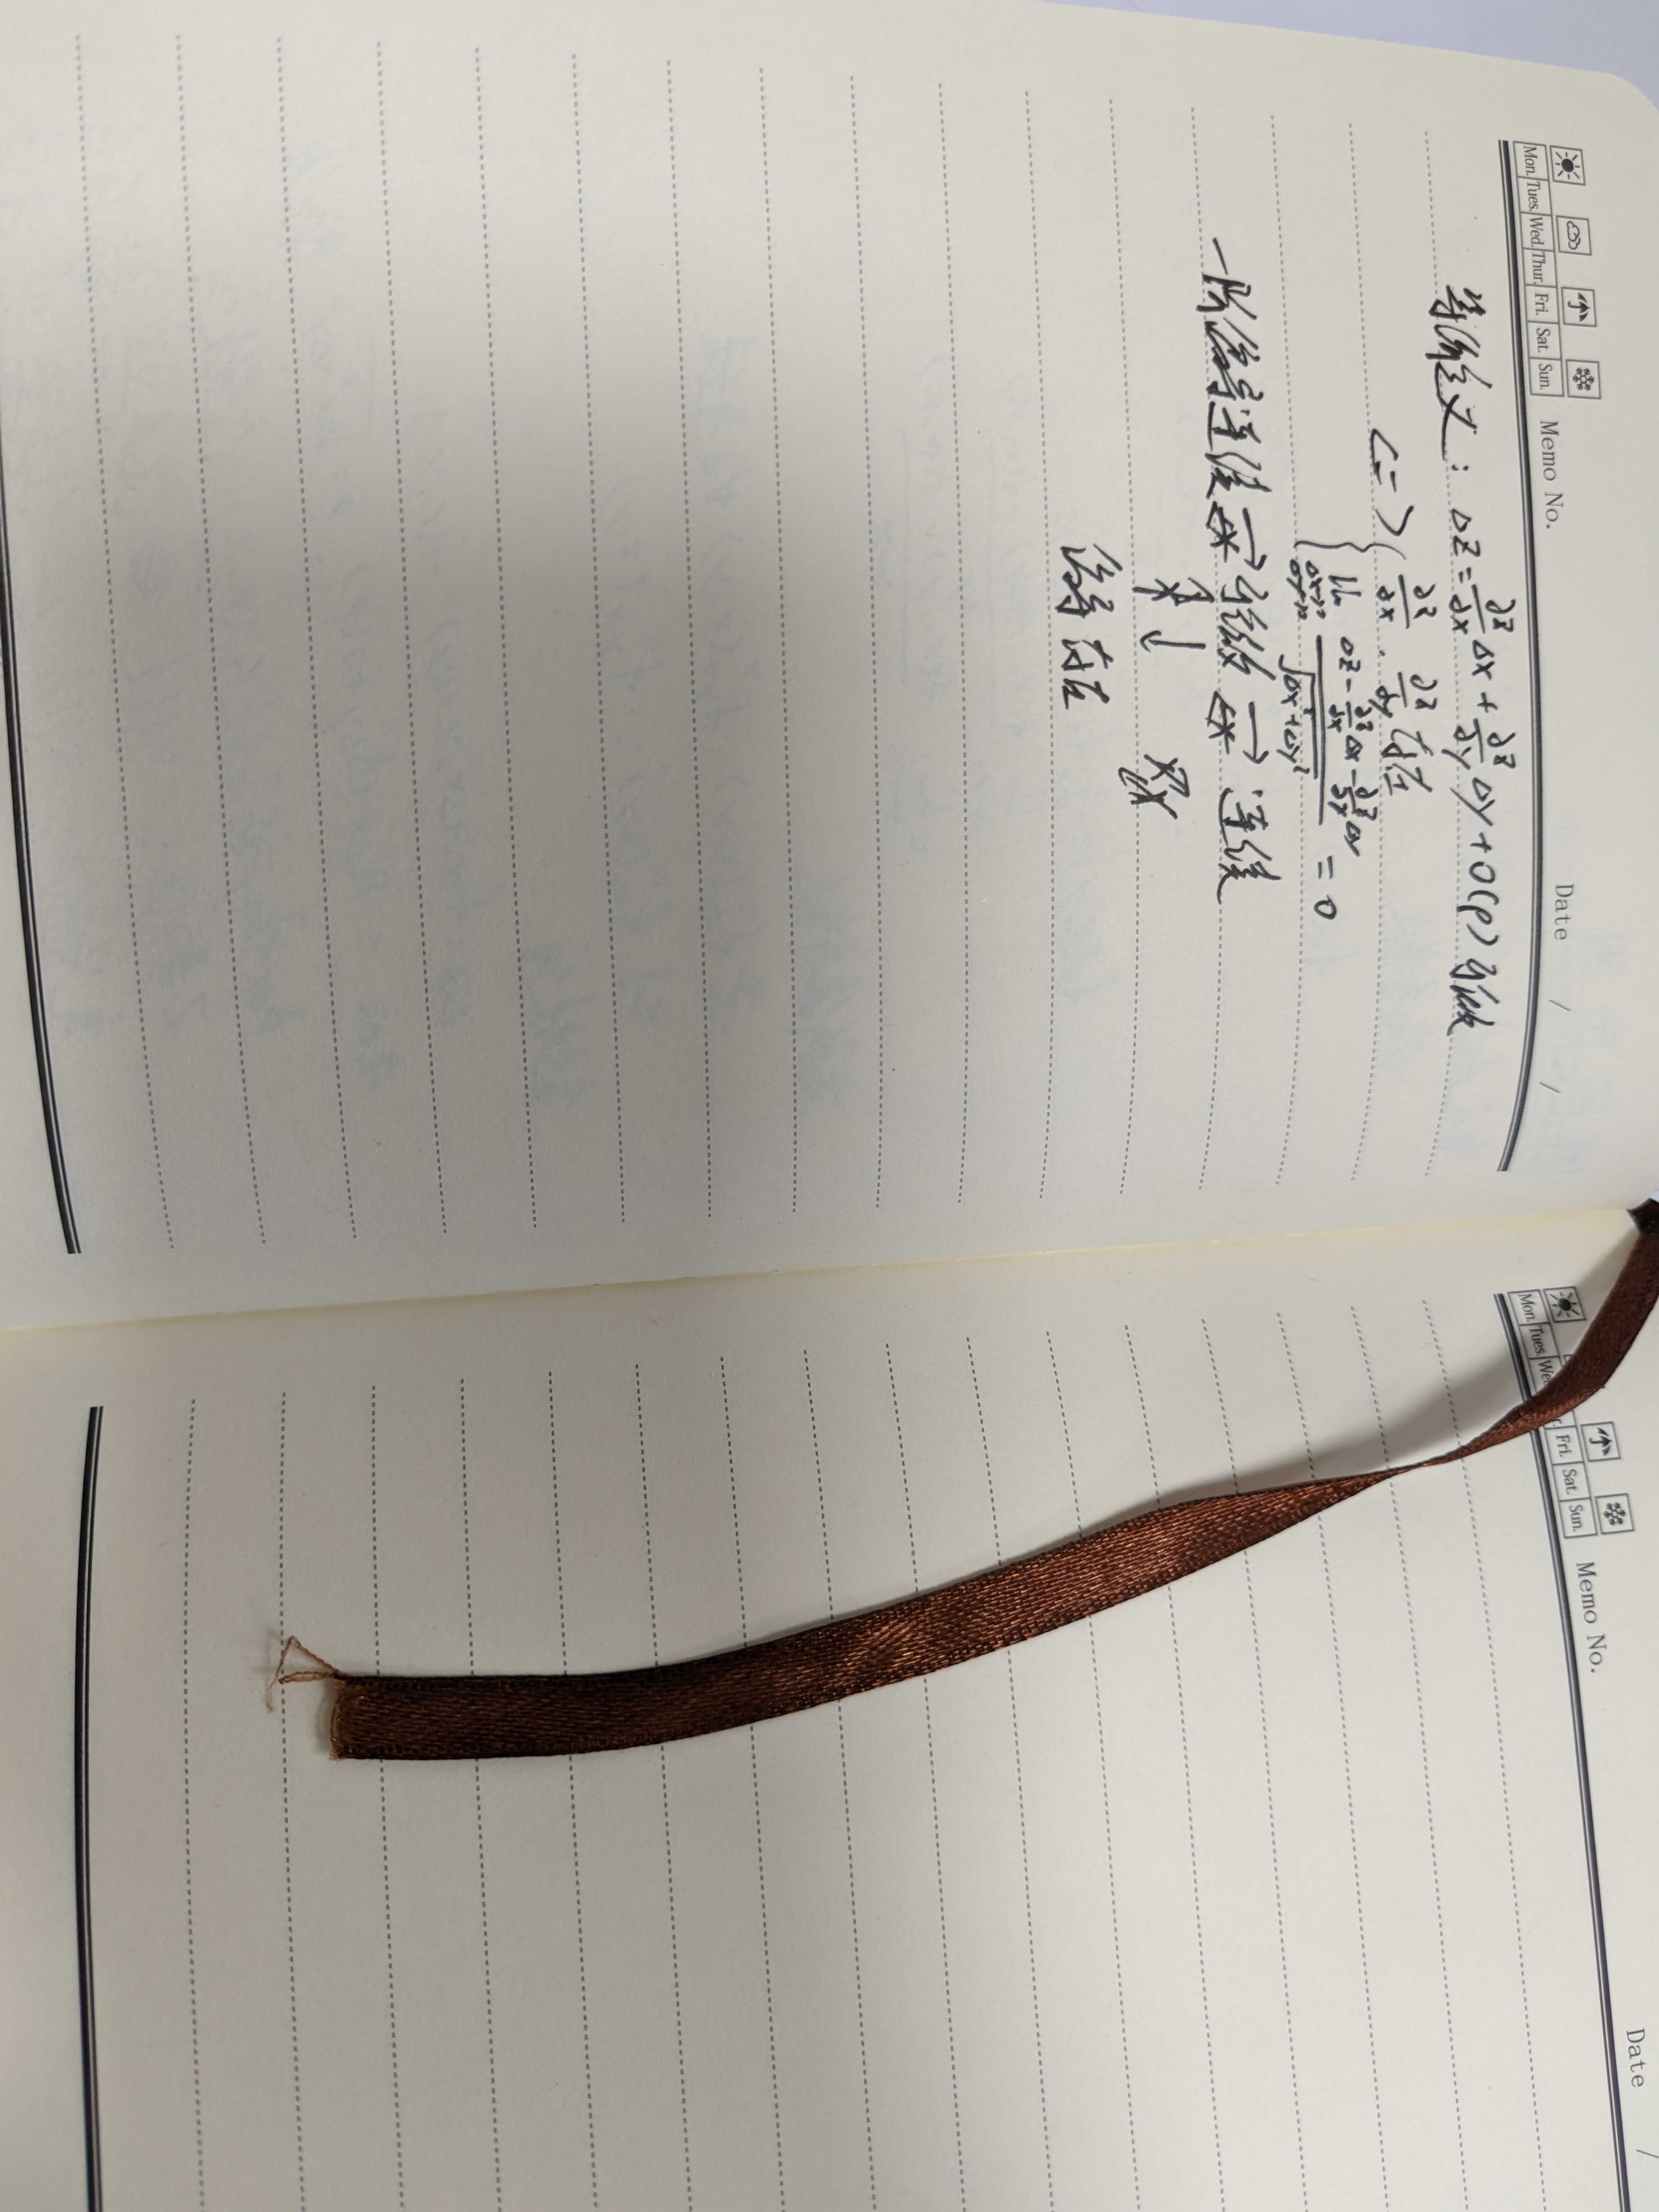 Mon. Tues. Wed. Thur. Fri. Sat. Sun. Memo No. Date / /
等价定义: Δz=∂z/∂x Δx+∂z/∂y Δy+o(ρ) 可微
<=> { ∂z/∂x, ∂z/∂y 存在
lim Δx→0 Δy→0 (Δz-∂z/∂xΔx-∂z/∂yΔy)/√(Δx²+Δy²) = 0
一阶偏导连续 → 可微 → 连续
偏导存在
Mon. Tues. Fri. Sat. Sun. Memo No. Date /